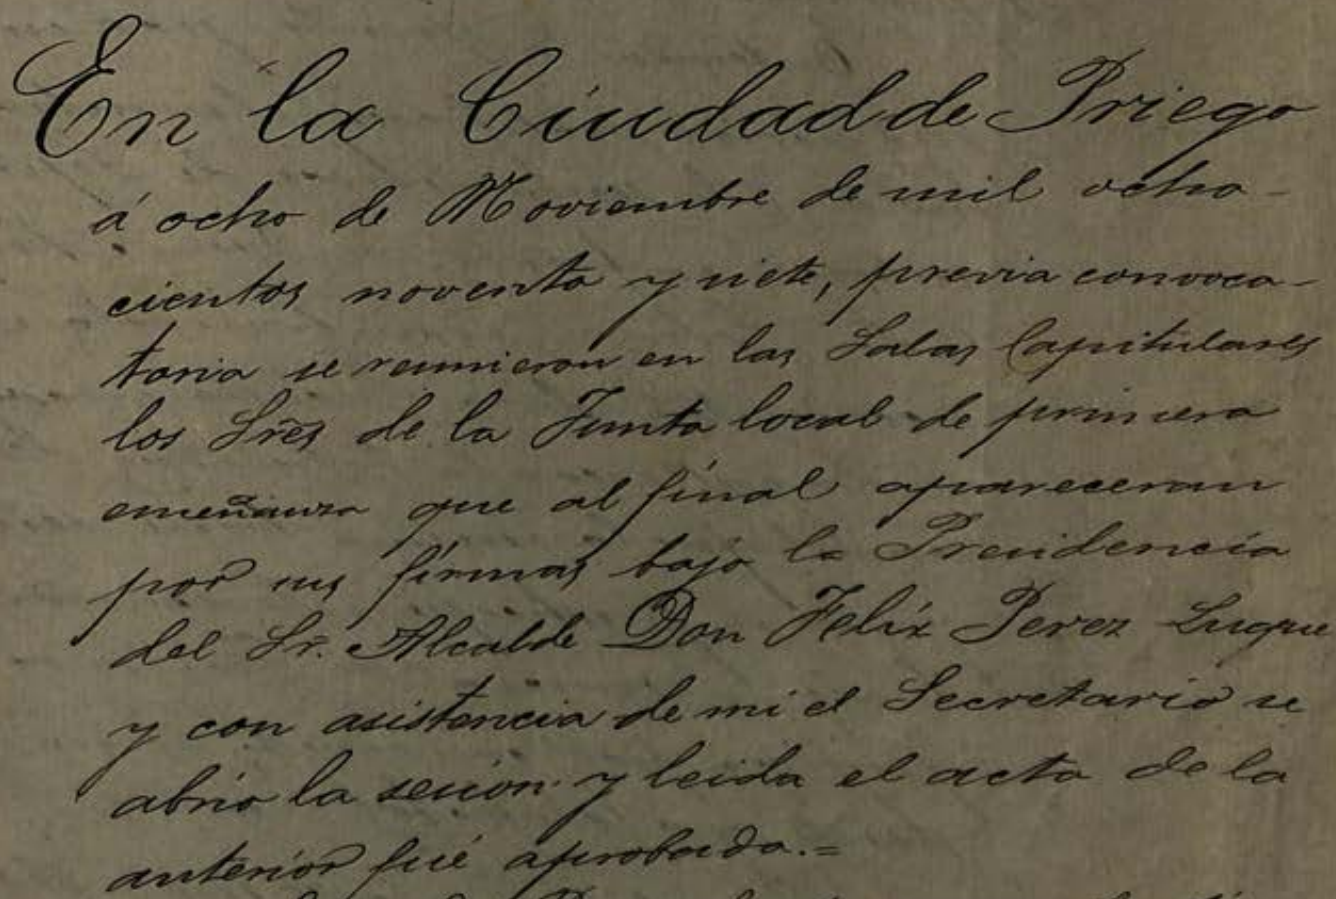 En la Ciudad de Priego
á ocho de Noviembre de mil ocho-
cientos noventa y siete, previa convoca-
toria se reunieron en las Salas Capitulares
los Sres de la Junta local de primera
enseñanza que al final apareceran
por sus firmas bajo la Presidencia
del Sr. Alcalde Don Felix Perez Luque
y con asistencia de mi el Secretario se
abrio la sesion y leida el acta de la
anterior fué aprobada.=